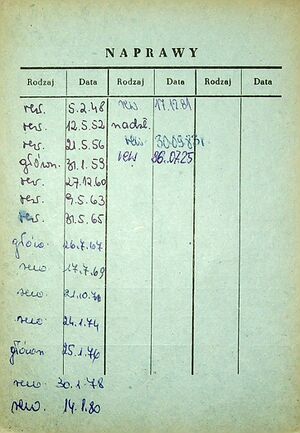 NAPRAWY
Rodzaj Data Rodzaj Data Rodzaj Data
rew. 5.2.48 rew 17.12.81
rew. 12.5.52 nadzł.
rew. 21.5.56 rew. 30.09.83r
główn. 31.1.59 rew 26.07.25
rew. 27.12.60
rew. 9.5.63
rew. 31.5.65
główn. 26.7.67
rew. 17.7.69
rew. 21.10.71
rew. 24.1.74
główn 25.1.76
rew. 30.1.78
rew. 14.1.80